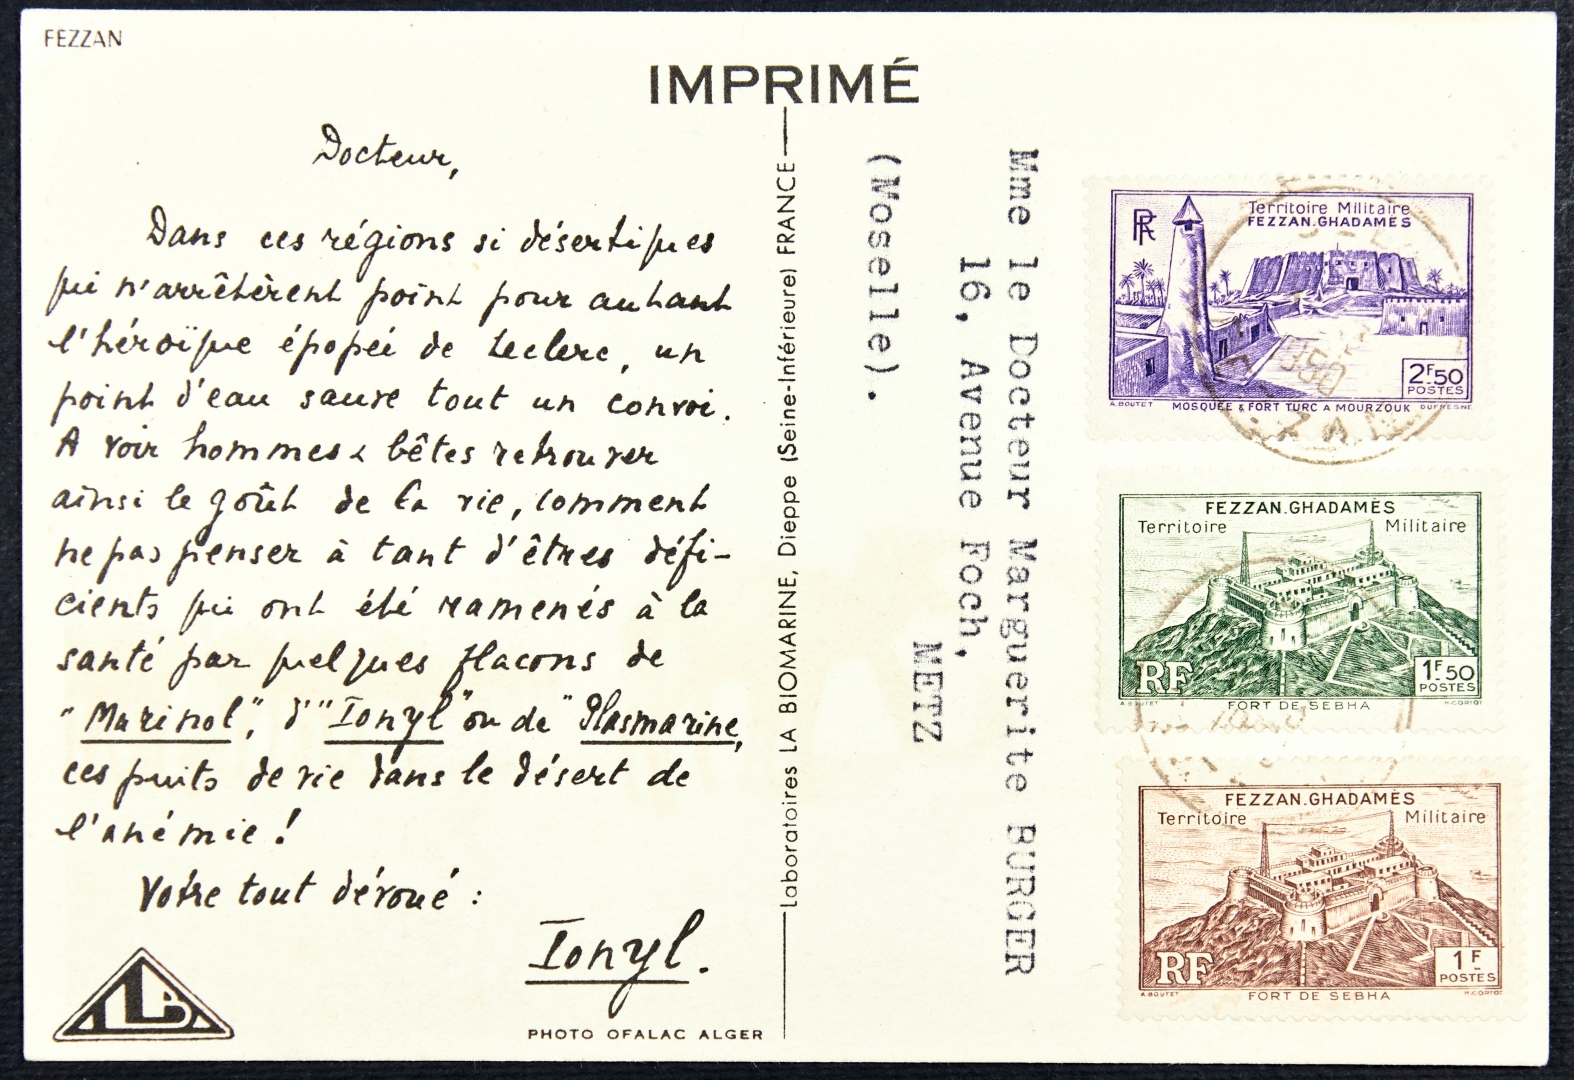 FEZZAN
IMPRIMÉ
Docteur,
Dans ces régions si désertiques
qui n'arrêtèrent point pour autant
l'héroïque épopée de Leclerc, un
point d'eau sauve tout un convoi.
A voir hommes & bêtes retrouver
ainsi le goût de la vie, comment
ne pas penser à tant d'êtres défi-
cients qui ont été ramenés à la
santé par quelques flacons de
"Marinol", d'"Ionyl" ou de "Plasmarine,
ces puits de vie dans le désert de
l'anémie !
Votre tout dévoué :
Ionyl.
PHOTO OFALAC ALGER
Laboratoires LA BIOMARINE, Dieppe (Seine-Inférieure) FRANCE
Mme le Docteur Marguerite BURGER
16, Avenue Foch,
METZ
(Moselle).
RF
Territoire Militaire
FEZZAN.GHADAMÈS
2F.50
POSTES
A.BOUTET MOSQUÉE & FORT TURC A MOURZOUK DUFRESNE
1950
FEZZAN.GHADAMÈS
Territoire Militaire
RF
1F.50
POSTES
A.BOUTET FORT DE SEBHA H.CORTOT
FEZZAN.GHADAMÈS
Territoire Militaire
RF
1F
POSTES
A.BOUTET FORT DE SEBHA H.CORTOT